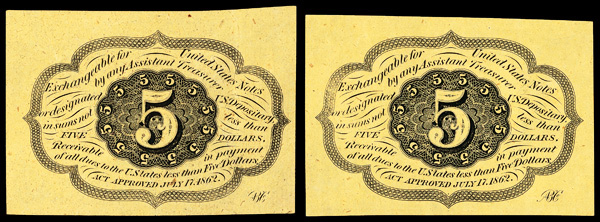 Exchangeable for United States Notes
by any Assistant Treasurer
or designated U.S. Depositary
in sums not less than
FIVE DOLLARS.
Receivable in payment
of all dues to the U. States less than Five Dollars.
ACT APPROVED JULY 17, 1862.
5
5 5 5 5 5 5 5 5 5 5 5 5
Exchangeable for United States Notes
by any Assistant Treasurer
or designated U.S. Depositary
in sums not less than
FIVE DOLLARS.
Receivable in payment
of all dues to the U. States less than Five Dollars.
ACT APPROVED JULY 17, 1862.
5
5 5 5 5 5 5 5 5 5 5 5 5